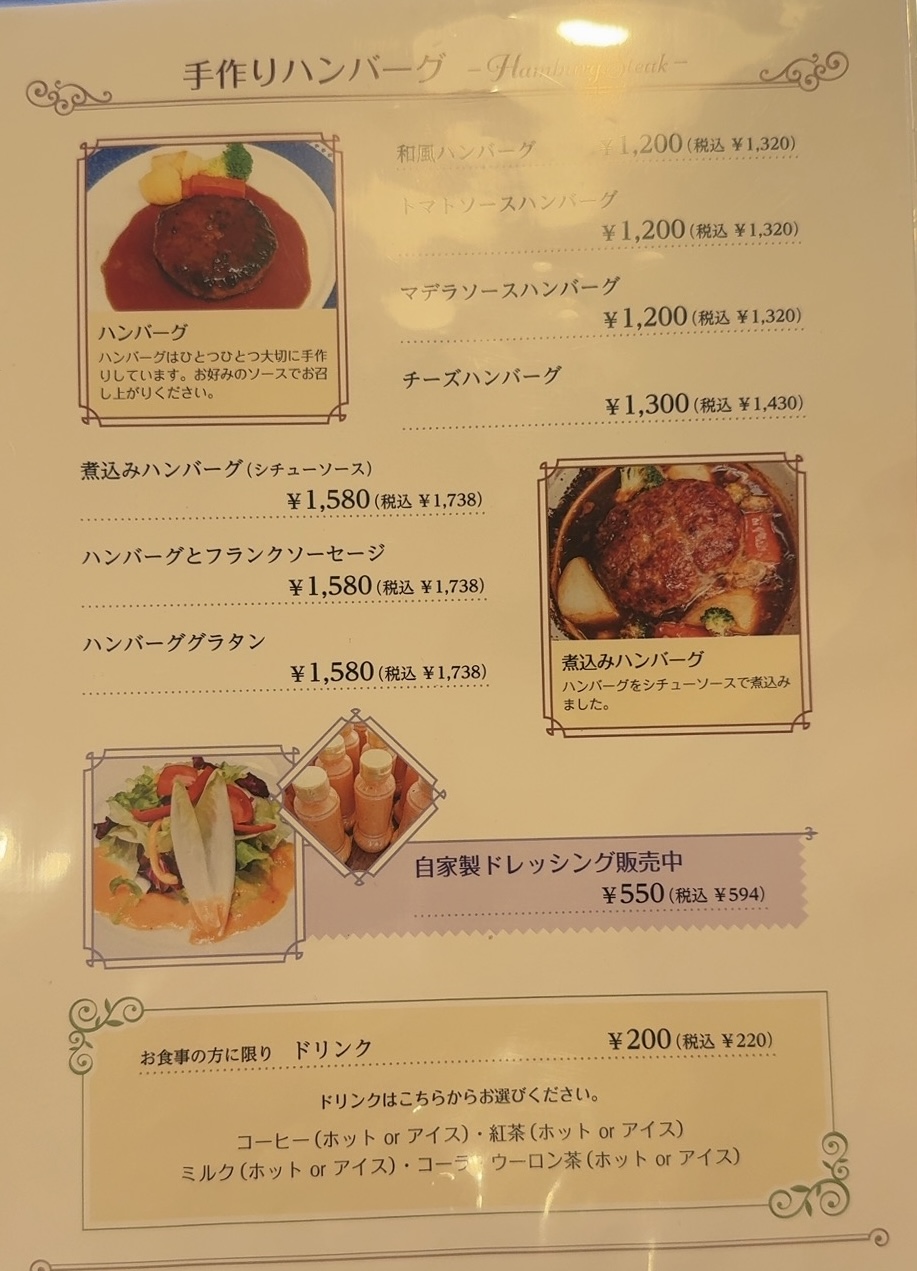 手作りハンバーグ -Hamburg Steak-
和風ハンバーグ ¥1,200(税込 ¥1,320)
トマトソースハンバーグ
¥1,200(税込 ¥1,320)
マデラソースハンバーグ
¥1,200(税込 ¥1,320)
チーズハンバーグ
¥1,300(税込 ¥1,430)
ハンバーグ
ハンバーグはひとつひとつ大切に手作
りしています。お好みのソースでお召
し上がりください。
煮込みハンバーグ(シチューソース)
¥1,580(税込 ¥1,738)
ハンバーグとフランクソーセージ
¥1,580(税込 ¥1,738)
ハンバーググラタン
¥1,580(税込 ¥1,738)
煮込みハンバーグ
ハンバーグをシチューソースで煮込み
ました。
自家製ドレッシング販売中
¥550(税込 ¥594)
お食事の方に限り ドリンク ¥200(税込 ¥220)
ドリンクはこちらからお選びください。
コーヒー(ホット or アイス)・紅茶(ホット or アイス)
ミルク(ホット or アイス)・コーラ・ウーロン茶(ホット or アイス)